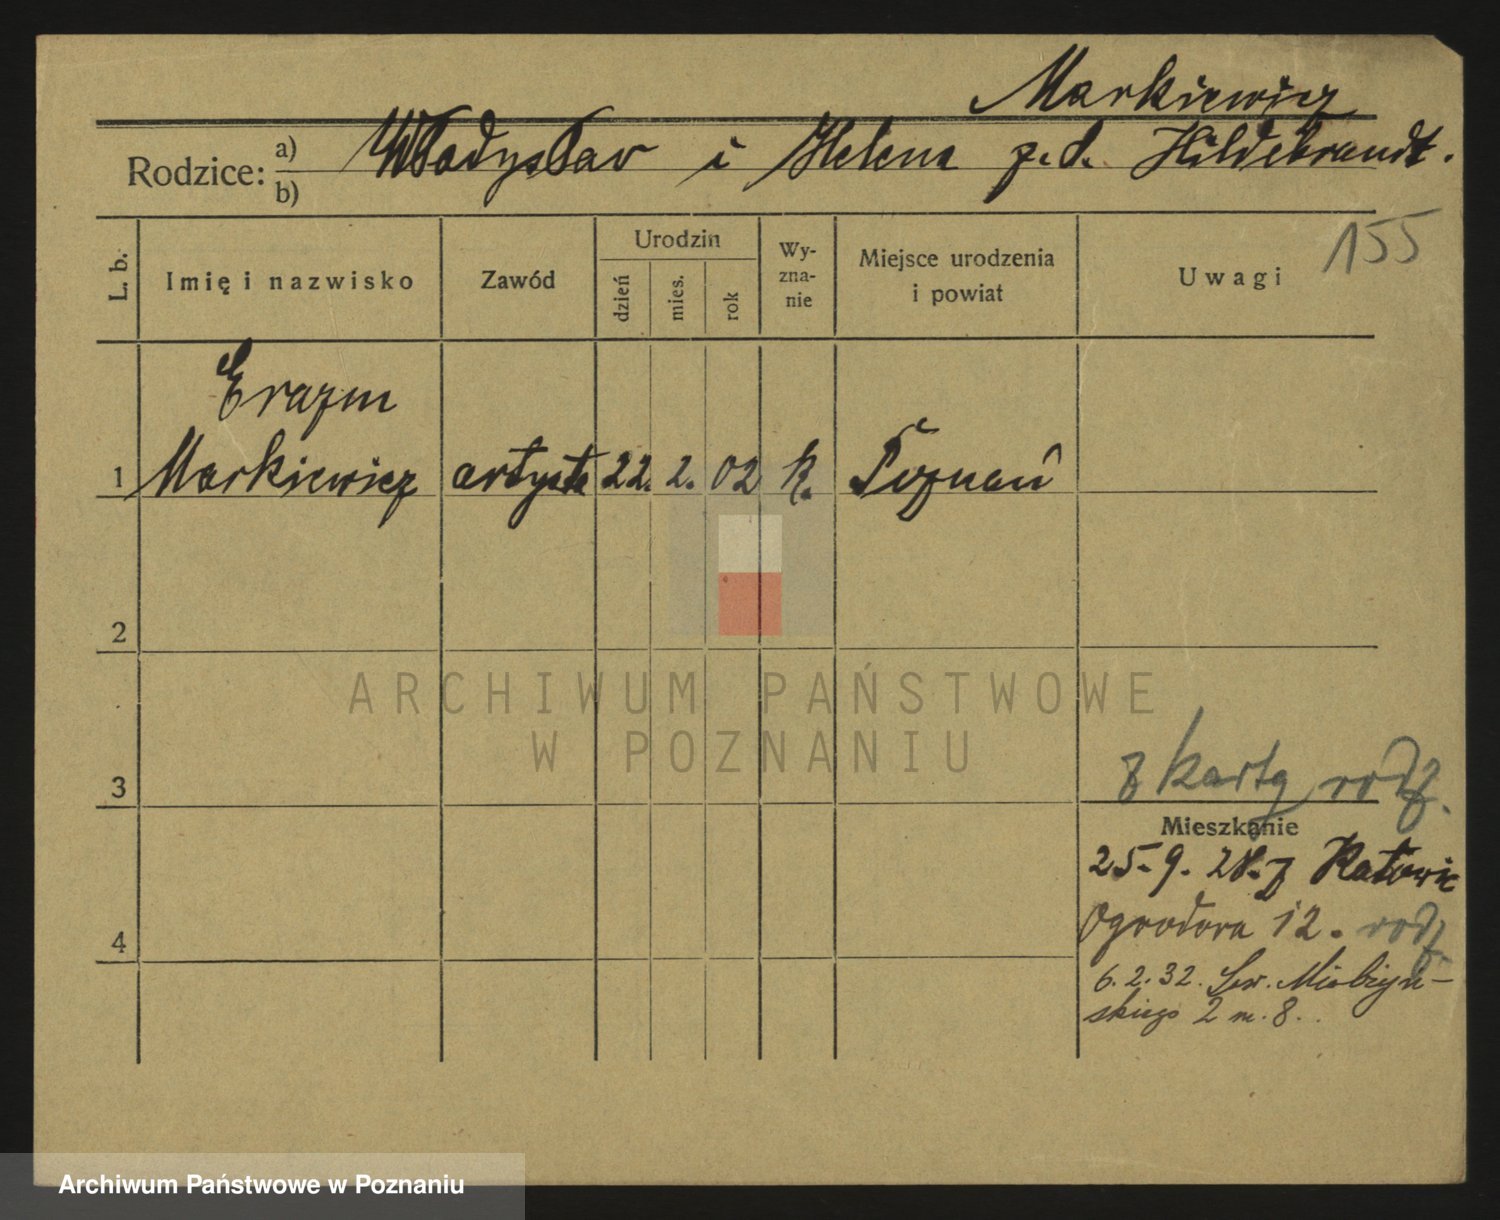 Markiewicz
Rodzice: a) b) Władysław i Helena z.d. Hildebrandt.
155
L. b. Imię i nazwisko Zawód Urodzin dzień mies. rok Wy-zna-nie Miejsce urodzenia i powiat Uwagi
Erazm
1 Markiewicz artysta 22. 2. 02 k. Poznań
2
ARCHIWUM PAŃSTWOWE
W POZNANIU
z karty rodz.
3
Mieszkanie
25.9. 28. z Katowic
Ogrodowa 12. rodz.
4
6.2.32. Sew. Mielżyń-
skiego 2 m. 8.
Archiwum Państwowe w Poznaniu